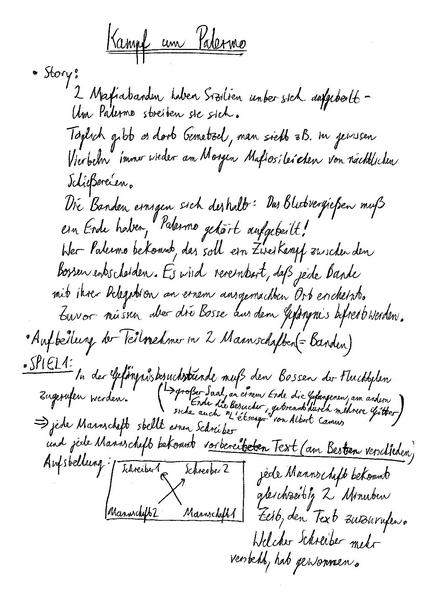 Kampf um Palermo
• Story:
2 Mafiabanden haben Sizilien unter sich aufgeteilt –
Um Palermo streiten sie sich.
Täglich gibt es dort Gemetzel, man sieht z.B. in gewissen
Vierteln immer wieder am Morgen Mafiosileichen von nächtlichen
Schießereien.
Die Banden einigen sich deshalb: Das Blutvergießen muß
ein Ende haben, Palermo gehört aufgeteilt!
Wer Palermo bekommt, das soll ein Zweikampf zwischen den
Bossen entscheiden. Es wird vereinbart, daß jede Bande
mit ihrer Delegation an einem ausgemachten Ort erscheint.
Zuvor müssen aber die Bosse aus dem Gefängnis befreit werden.
• Aufteilung der Teilnehmer in 2 Mannschaften (= Banden)
• SPIEL 1:
In der Gefängnisbesuchstunde muß den Bossen der Fluchtplan
zugerufen werden.
(↳ großer Saal, an einem Ende die Gefangenen, am andern
Ende die Besucher, getrennt durch mehrere Gitter)
siehe auch "L'étranger" von Albert Camus
⇒ jede Mannschaft stellt einen Schreiber
und jede Mannschaft bekommt vorbereiteten Text (am Besten verschieden)
Aufstellung:
Schreiber 1 Schreiber 2
Mannschaft 2 Mannschaft 1
jede Mannschaft bekommt
gleichzeitig 2 Minuten
Zeit, den Text zuzurufen.
Welcher Schreiber mehr
versteht, hat gewonnen.